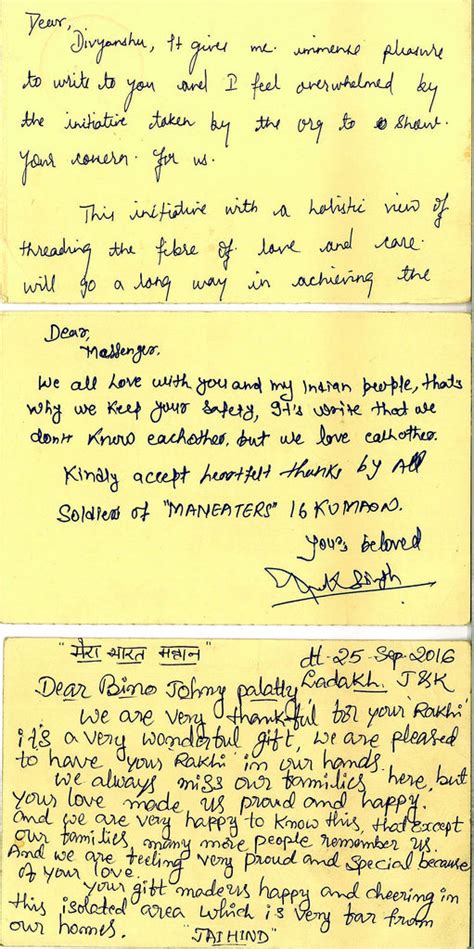 Dear,
Divyanshu, It gives me immense pleasure
to write to you and I feel overwhelmed by
the initiative taken by the org to show
your concern for us.
This initiative with a holistic view of
threading the fibre of love and care
will go a long way in achieving the
Dear,
Massenger,
We all Love with you and my Indian people, thats
why we keep your safety, It's write that we
don't know eachother, but we love eachother.
Kindly accept heartfelt thanks by All
Soldiers of "MANEATERS" 16 KUMAON.
Your's beloved
Singh
"मेरा भारत महान"
dt-25-Sep-2016
Ladakh. J&K
Dear Bino Johny palatty
We are very thankful for your 'Rakhi'
it's a very wonderful gift, we are pleased
to have your 'Rakhi' in our hands.
We always miss our families here, but
your love made us proud and happy.
And we are very happy to know this, that except
our families, many more people remember us.
And we are feeling very proud and special because
of your love.
Your gift made us happy and cheering in
this isolated area which is very far from
our homes.
"JAI HIND"